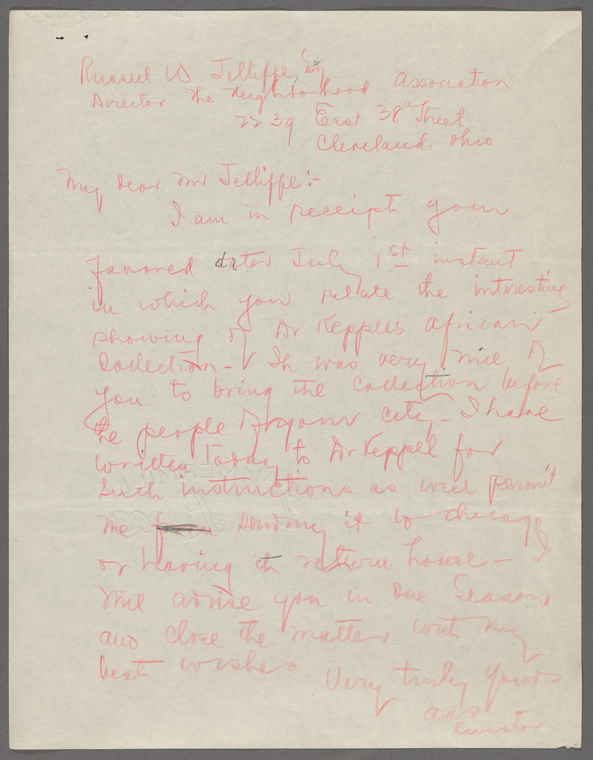 Russell W Jelliffe, Esq
Director the Neighborhood Association
2239 East 38th Street
Cleveland, Ohio
My dear Mr Jelliffe:-
I am in receipt your
favored dated July 1st instant
in which you relate the interesting
showing of Dr Keppels african
Collection - It was very nice of
you to bring the collection before
the people of your city - I have
written today to Dr Keppel for
such instructions as will permit
me sending it to Chicago
or having it return home - I
me advise you in Due Season
and close the matter with my
best wishes
Very truly yours
aas
Curator